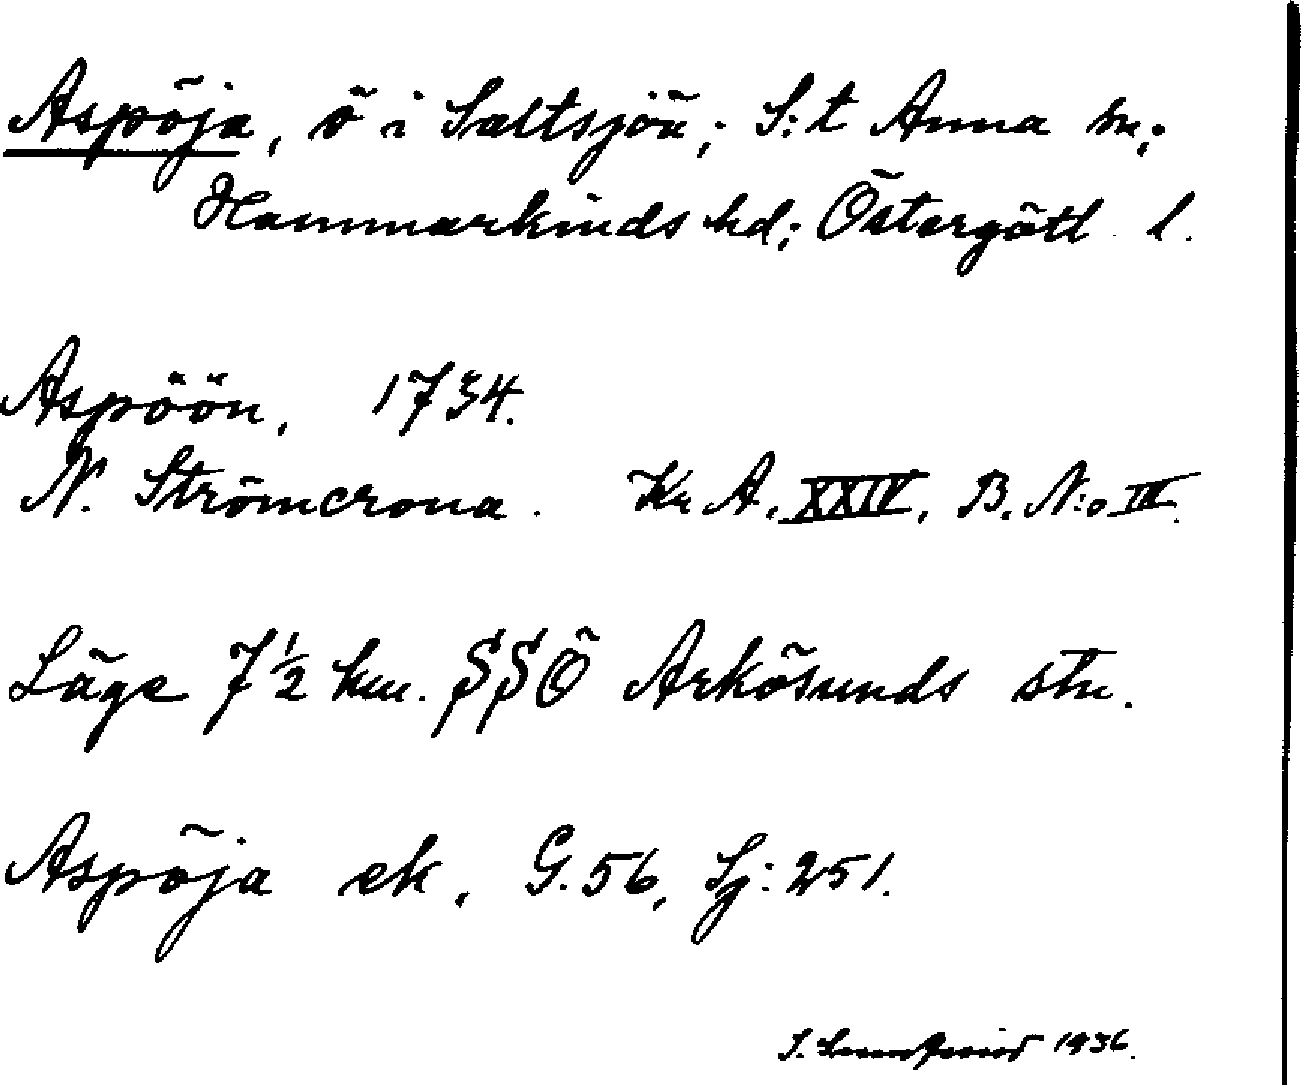 Aspöja, ö i Saltsjön; S:t Anna sn;
Hammarkinds hd; Östergötl. l.
Aspöön, 1734.
N. Strömcrona. Kr A. XXIV, B. N:o III.
Läge 7 1/2 km. SSÖ Arkösunds stn.
Aspöja ek, G. 56, Sj: 251.
S. 1936.